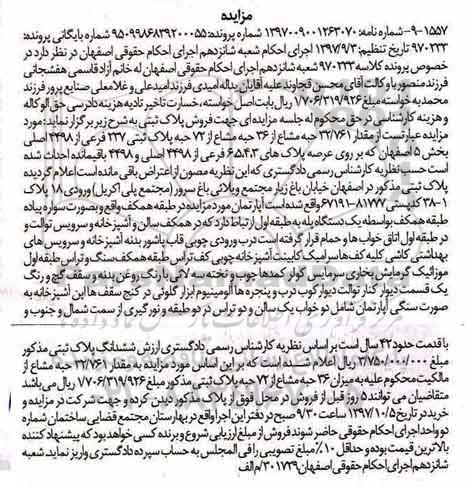 مزایده
۱۵۵۷-۹- شماره نامه: ۱۳۹۷۰۰۹۰۰۱۲۶۳۰۷۰ شماره پرونده: ۹۵۰۹۹۸۶۸۳۹۲۰۰۰۵۵ شماره بایگانی پرونده:
۹۷۰۲۳۳ تاریخ تنظیم: ۱۳۹۷/۹/۳ اجرای احکام شعبه شانزدهم اجرای احکام حقوقی اصفهان در نظر دارد در
خصوص پرونده کلاسه ۹۷۰۲۳۳ شعبه شانزدهم اجرای احکام حقوقی اصفهان له خانم آزاد قاسمی هفشجانی
فرزند منصور با وکالت آقای محسن قجاوند علیه آقایان یداله امیدی فرزند امیدعلی و غلامعلی صنایع پرور فرزند
محمد به خواسته مبلغ ۱/۷۰۶/۳۱۹/۹۲۶ ریال بابت اصل خواسته، خسارت تاخیر تادیه هزینه دادرسی حق الوکاله
و هزینه کارشناسی در حق محکوم له جلسه مزایده ای جهت فروش پلاک ثبتی به شرح زیر برگزار نماید: مورد
مزایده عبارتست از مقدار ۳۲/۷۶۱ حبه مشاع از ۳۶ حبه مشاع از ۷۲ حبه پلاک ثبتی ۲۳۷ فرعی از ۴۴۹۸ اصلی
بخش ۵ اصفهان که بر روی عرصه پلاک های ۶،۵،۴،۳ فرعی از ۴۴۹۸ اصلی و ۴۴۹۸ باقیمانده احداث شده
است حسب نظریه کارشناس رسمی دادگستری که این نظریه مصون از اعتراض باقی مانده است اعلام گردیده
پلاک ثبتی مذکور در اصفهان خیابان باغ زیار مجتمع ویلائی باغ سرور (مجتمع پلی اکریل) ورودی ۱۸ پلاک
۳۸-۱ کدپستی ۸۱۷۷۷-۶۷۱۹۱ واقع شده است آپارتمان مورد مزایده در طبقه همکف واقع و بصورت سواره پیاده
طبقه همکف بواسطه یک دستگاه پله به طبقه اول ارتباط دارد که در همکف سالن و آشپزخانه و سرویس توالت و
در طبقه اول اتاق خواب ها و حمام قرار گرفته است درب ورودی چوبی قاب پاشور بدنه آشپزخانه و سرویس های
بهداشتی کاشی کلیه کف ها سرامیک کابینت آشپزخانه چوبی کف تراس طبقه همکف سنگ و تراس طبقه اول
موزائیک گرمایش بخاری سرمایش کولر کمدها چوب و تخته سه لائی با رنگ روغن بدنه و سقف گچ و رنگ
یک قسمت دیوار کنار توالت دیوار کوب درب و پنجره ها آلومینیوم ابزار گلوئی در کنج سقف ها این آشپزخانه به
صورت سنگی آپارتمان شامل دو خواب یک سالن و دو تراس در دو طبقه و نورگیری از سمت شمال و جنوب و
با قدمت حدود ۴۲ سال است بر اساس نظریه کارشناس رسمی دادگستری ارزش ششدانگ پلاک ثبتی مذکور
مبلغ ۳/۷۵۰/۰۰۰/۰۰۰ ریال اعلام شده است که بر این اساس مورد مزایده به مقدار ۳۲/۷۶۱ حبه مشاع از
مالکیت محکوم علیه به میزان ۳۶ حبه مشاع از ۷۲ حبه پلاک ثبتی مذکور مبلغ ۱/۷۰۶/۳۱۹/۹۲۶ ریال می باشد
متقاضیان می توانند ۵ روز قبل از فروش در محل فوق از پلاک مذکور دیدن کرده و جهت شرکت در مزایده و
خرید در تاریخ ۱۳۹۷/۱۰/۵ ساعت ۹/۳۰ صبح در دفتر این اجرا واقع در بهارستان مجتمع قضایی ساختمان شماره
دو واحد اجرای احکام حقوقی حاضر شوند فروش از مبلغ ارزیابی شروع و برنده کسی خواهد بود که پیشنهاد کننده
بالاترین قیمت بوده و حداقل ۱۰٪ مبلغ تصویبی را فی المجلس به حساب سپرده دادگستری واریز نماید. شعبه
شانزدهم اجرای احکام حقوقی اصفهان ۳۰۱۷۳۹/م الف